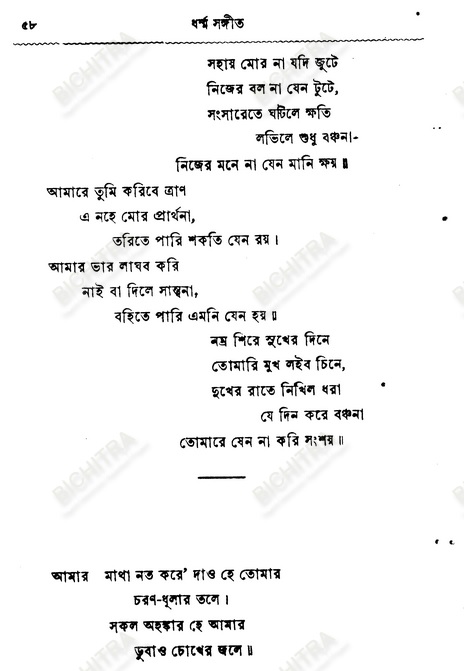 ৫৮ ধর্ম্ম সঙ্গীত
সহায় মোর না যদি জুটে
নিজের বল না যেন টুটে,
সংসারেতে ঘটিলে ক্ষতি
লভিলে শুধু বঞ্চনা-
নিজের মনে না যেন মানি ক্ষয়॥
আমারে তুমি করিবে ত্রাণ
এ নহে মোর প্রার্থনা,
তরিতে পারি শকতি যেন রয়।
আমার ভার লাঘব করি
নাই বা দিলে সান্ত্বনা,
বহিতে পারি এমনি যেন হয়॥
নম্র শিরে সুখের দিনে
তোমারি মুখ লইব চিনে,
দুখের রাতে নিখিল ধরা
যে দিন করে বঞ্চনা
তোমারে যেন না করি সংশয়॥
আমার মাথা নত করে’ দাও হে তোমার
চরণ-ধূলার তলে।
সকল অহঙ্কার হে আমার
ডুবাও চোখের জলে॥
BICHITRA